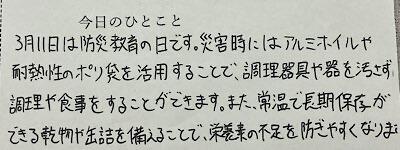 今日のひとこと
3月11日は防災教育の日です。災害時にはアルミホイルや
耐熱性のポリ袋を活用することで、調理器具や器を汚さず
調理や食事をすることができます。また、常温で長期保存が
できる乾物や缶詰を備えることで、栄養素の不足を防ぎやすくなりま